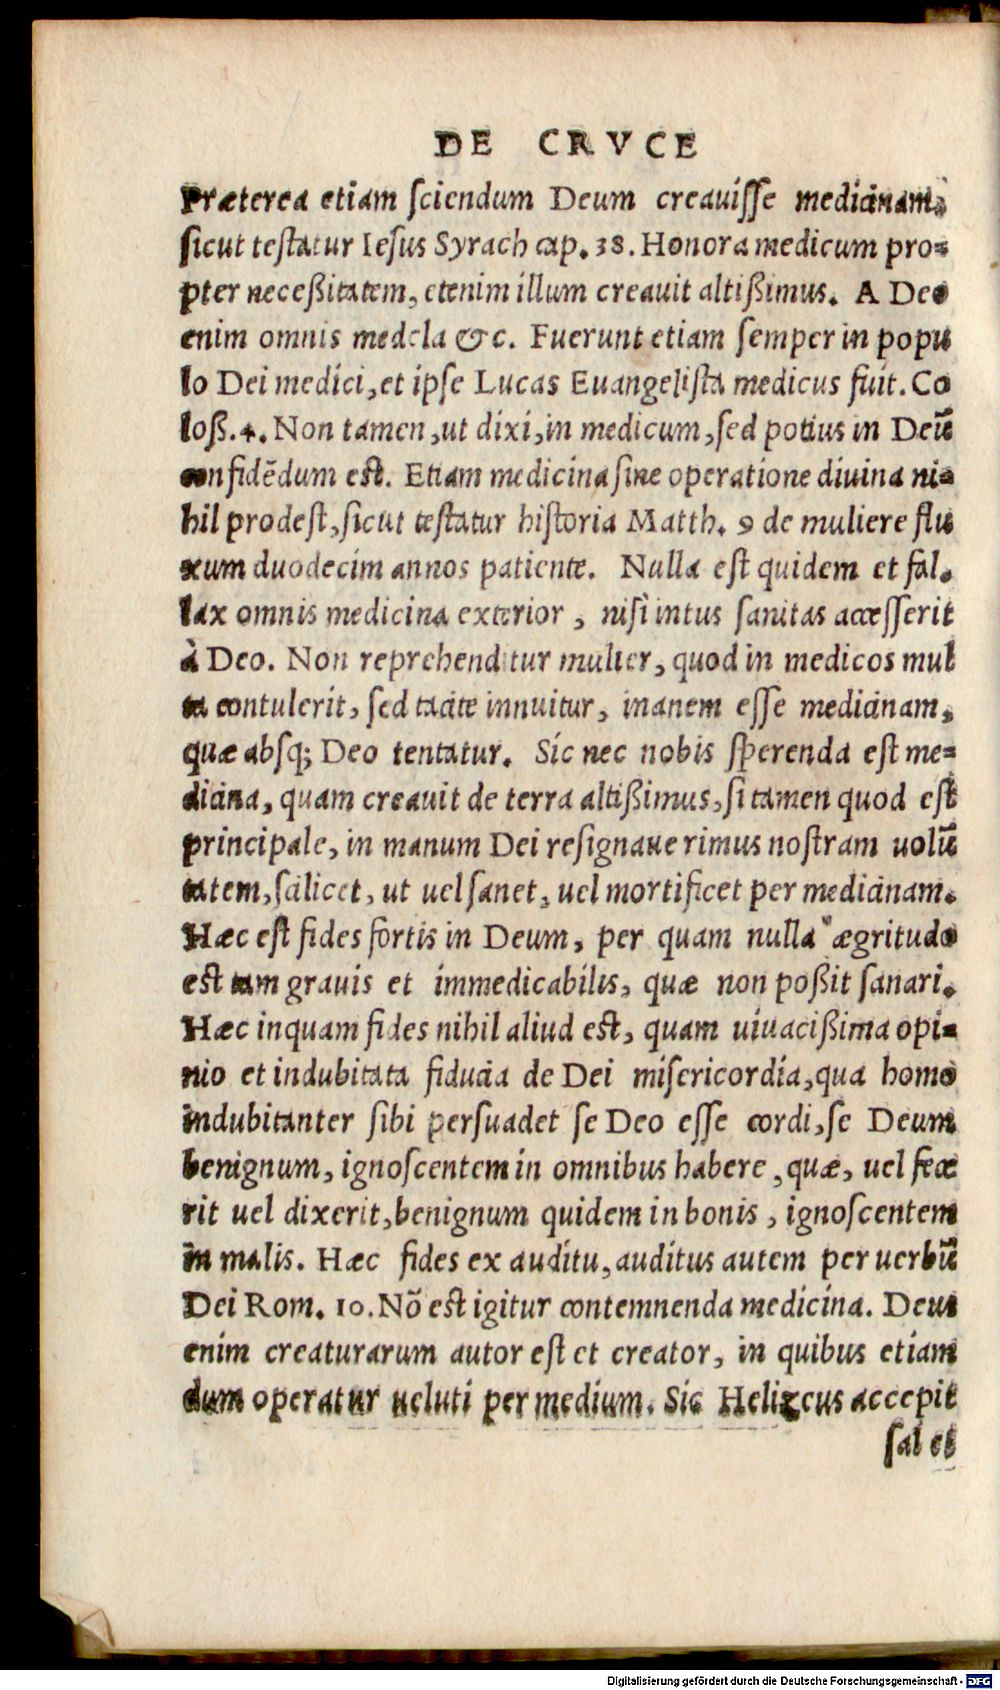 DE CRVCE
Præterea etiam ſciendum Deum creauiſſe medicinam,
ſicut teſtatur Ieſus Syrach cap. 38. Honora medicum pro-
pter neceßitatem, etenim illum creauit altißimus. A Deo
enim omnis medela &c. Fuerunt etiam ſemper in popu
lo Dei medici, et ipſe Lucas Euangeliſta medicus fuit. Co
loß. 4. Non tamen, ut dixi, in medicum, ſed potius in Deũ
confidẽdum eſt. Etiam medicina ſine operatione diuina ni-
hil prodeſt, ſicut teſtatur hiſtoria Matth. 9 de muliere flu
xum duodecim annos patiente. Nulla eſt quidem et fal.
lax omnis medicina exterior, niſi intus ſanitas acceſſerit
à Deo. Non reprehenditur mulier, quod in medicos mul
ta contulerit, ſed tacite innuitur, inanem eſſe medicinam,
quæ abſq; Deo tentatur. Sic nec nobis ſperenda eſt me-
dicina, quam creauit de terra altißimus, ſi tamen quod eſt
principale, in manum Dei reſignauerimus noſtram uolũ
tatem, ſcilicet, ut uel ſanet, uel mortificet per medicinam.
Hæc eſt fides fortis in Deum, per quam nulla ægritudo
eſt tam grauis et immedicabilis, quæ non poßit ſanari.
Hæc inquam fides nihil aliud eſt, quam uiuacißima opi-
nio et indubitata fiducia de Dei miſericordia, qua homo
indubitanter ſibi perſuadet ſe Deo eſſe cordi, ſe Deum
benignum, ignoſcentem in omnibus habere, quæ, uel fece
rit uel dixerit, benignum quidem in bonis, ignoſcentem
in malis. Hæc fides ex auditu, auditus autem per uerbũ
Dei Rom. 10. Nõ eſt igitur contemnenda medicina. Deus
enim creaturarum autor eſt et creator, in quibus etiam
dum operatur ueluti per medium. Sic Helizeus accepit
ſal et
Digitalisierung gefördert durch die Deutsche Forschungsgemeinschaft - DFG